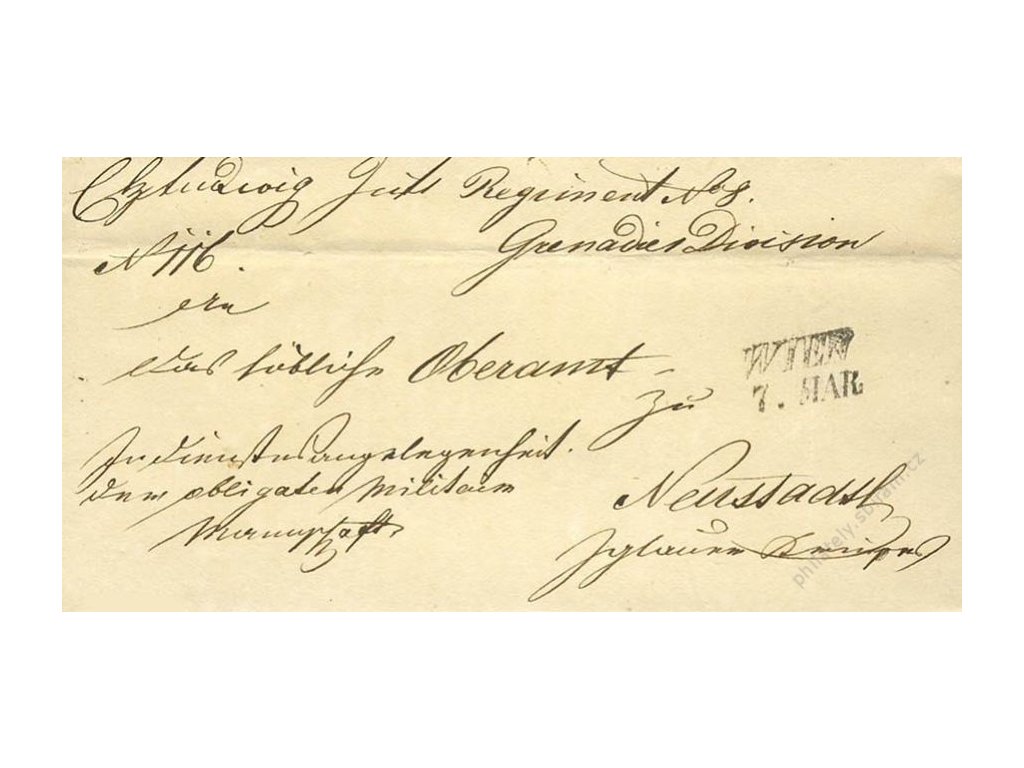 Ehz Ludwig Inft Regiment No 8.
Grenadier Division
No 116.
An
das löbliche Oberamt
zu
WIEN
7. MAR.
In Dienstesangelegenheit
der obligaten Militair
Mannschaft
Neustadtl
Iglauer Kreises
philately.sberatel.cz